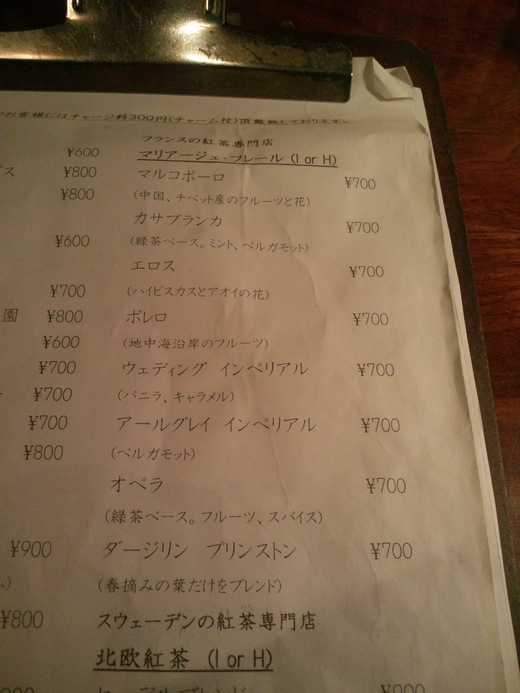 お客様にはチャージ料300円(チャーム付)頂戴致しております。
フランスの紅茶専門店
¥600 マリアージュ・フレール (I or H)
¥800 マルコポーロ ¥700
¥800 (中国、チベット産のフルーツと花)
カサブランカ ¥700
¥600 (緑茶ベース。ミント、ベルガモット)
エロス ¥700
¥700 (ハイビスカスとアオイの花)
園 ¥800 ボレロ ¥700
¥600 (地中海沿岸のフルーツ)
¥700 ウェディング インペリアル ¥700
¥700 (バニラ、キャラメル)
¥700 アールグレイ インペリアル ¥700
¥800 (ベルガモット)
オペラ ¥700
(緑茶ベース。フルーツ、スパイス)
¥900 ダージリン プリンストン ¥700
(春摘みの葉だけをブレンド)
¥800 スウェーデンの紅茶専門店
北欧紅茶 (I or H)